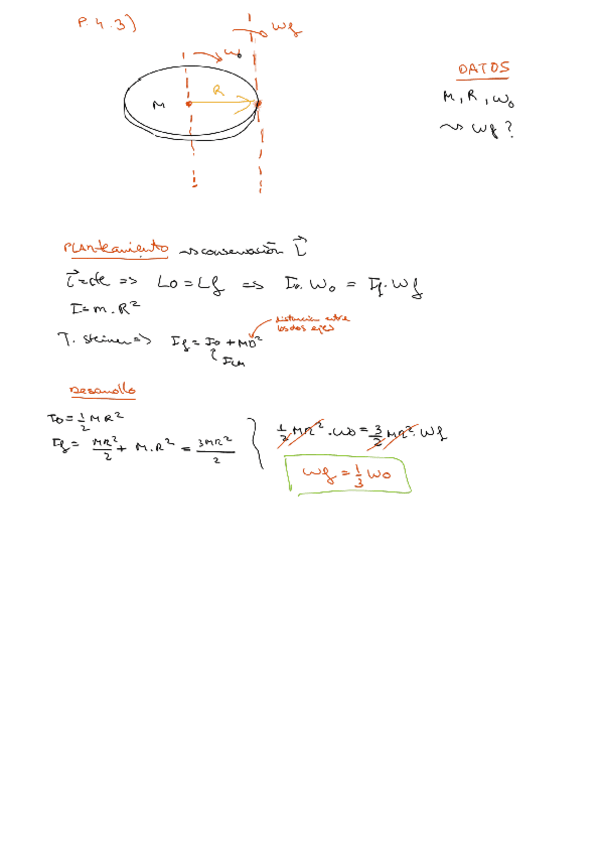 P.4.3)
ωf
ω₀
R
M
DATOS
M, R, ω₀
~> ωf?
PLANteamiento ~> conservación L⃗
L⃗=cte => L₀=Lf => I₀.ω₀ = If.ωf
I=m.R²
T. steiner => If = I₀ + MD²
distancia entre
los dos ejes
ICM
Desarrollo
I₀=1/2 MR²
If= MR²/2 + M.R² = 3MR²/2
1/2 MR².ω₀ = 3/2 MR².ωf
ωf = 1/3 ω₀